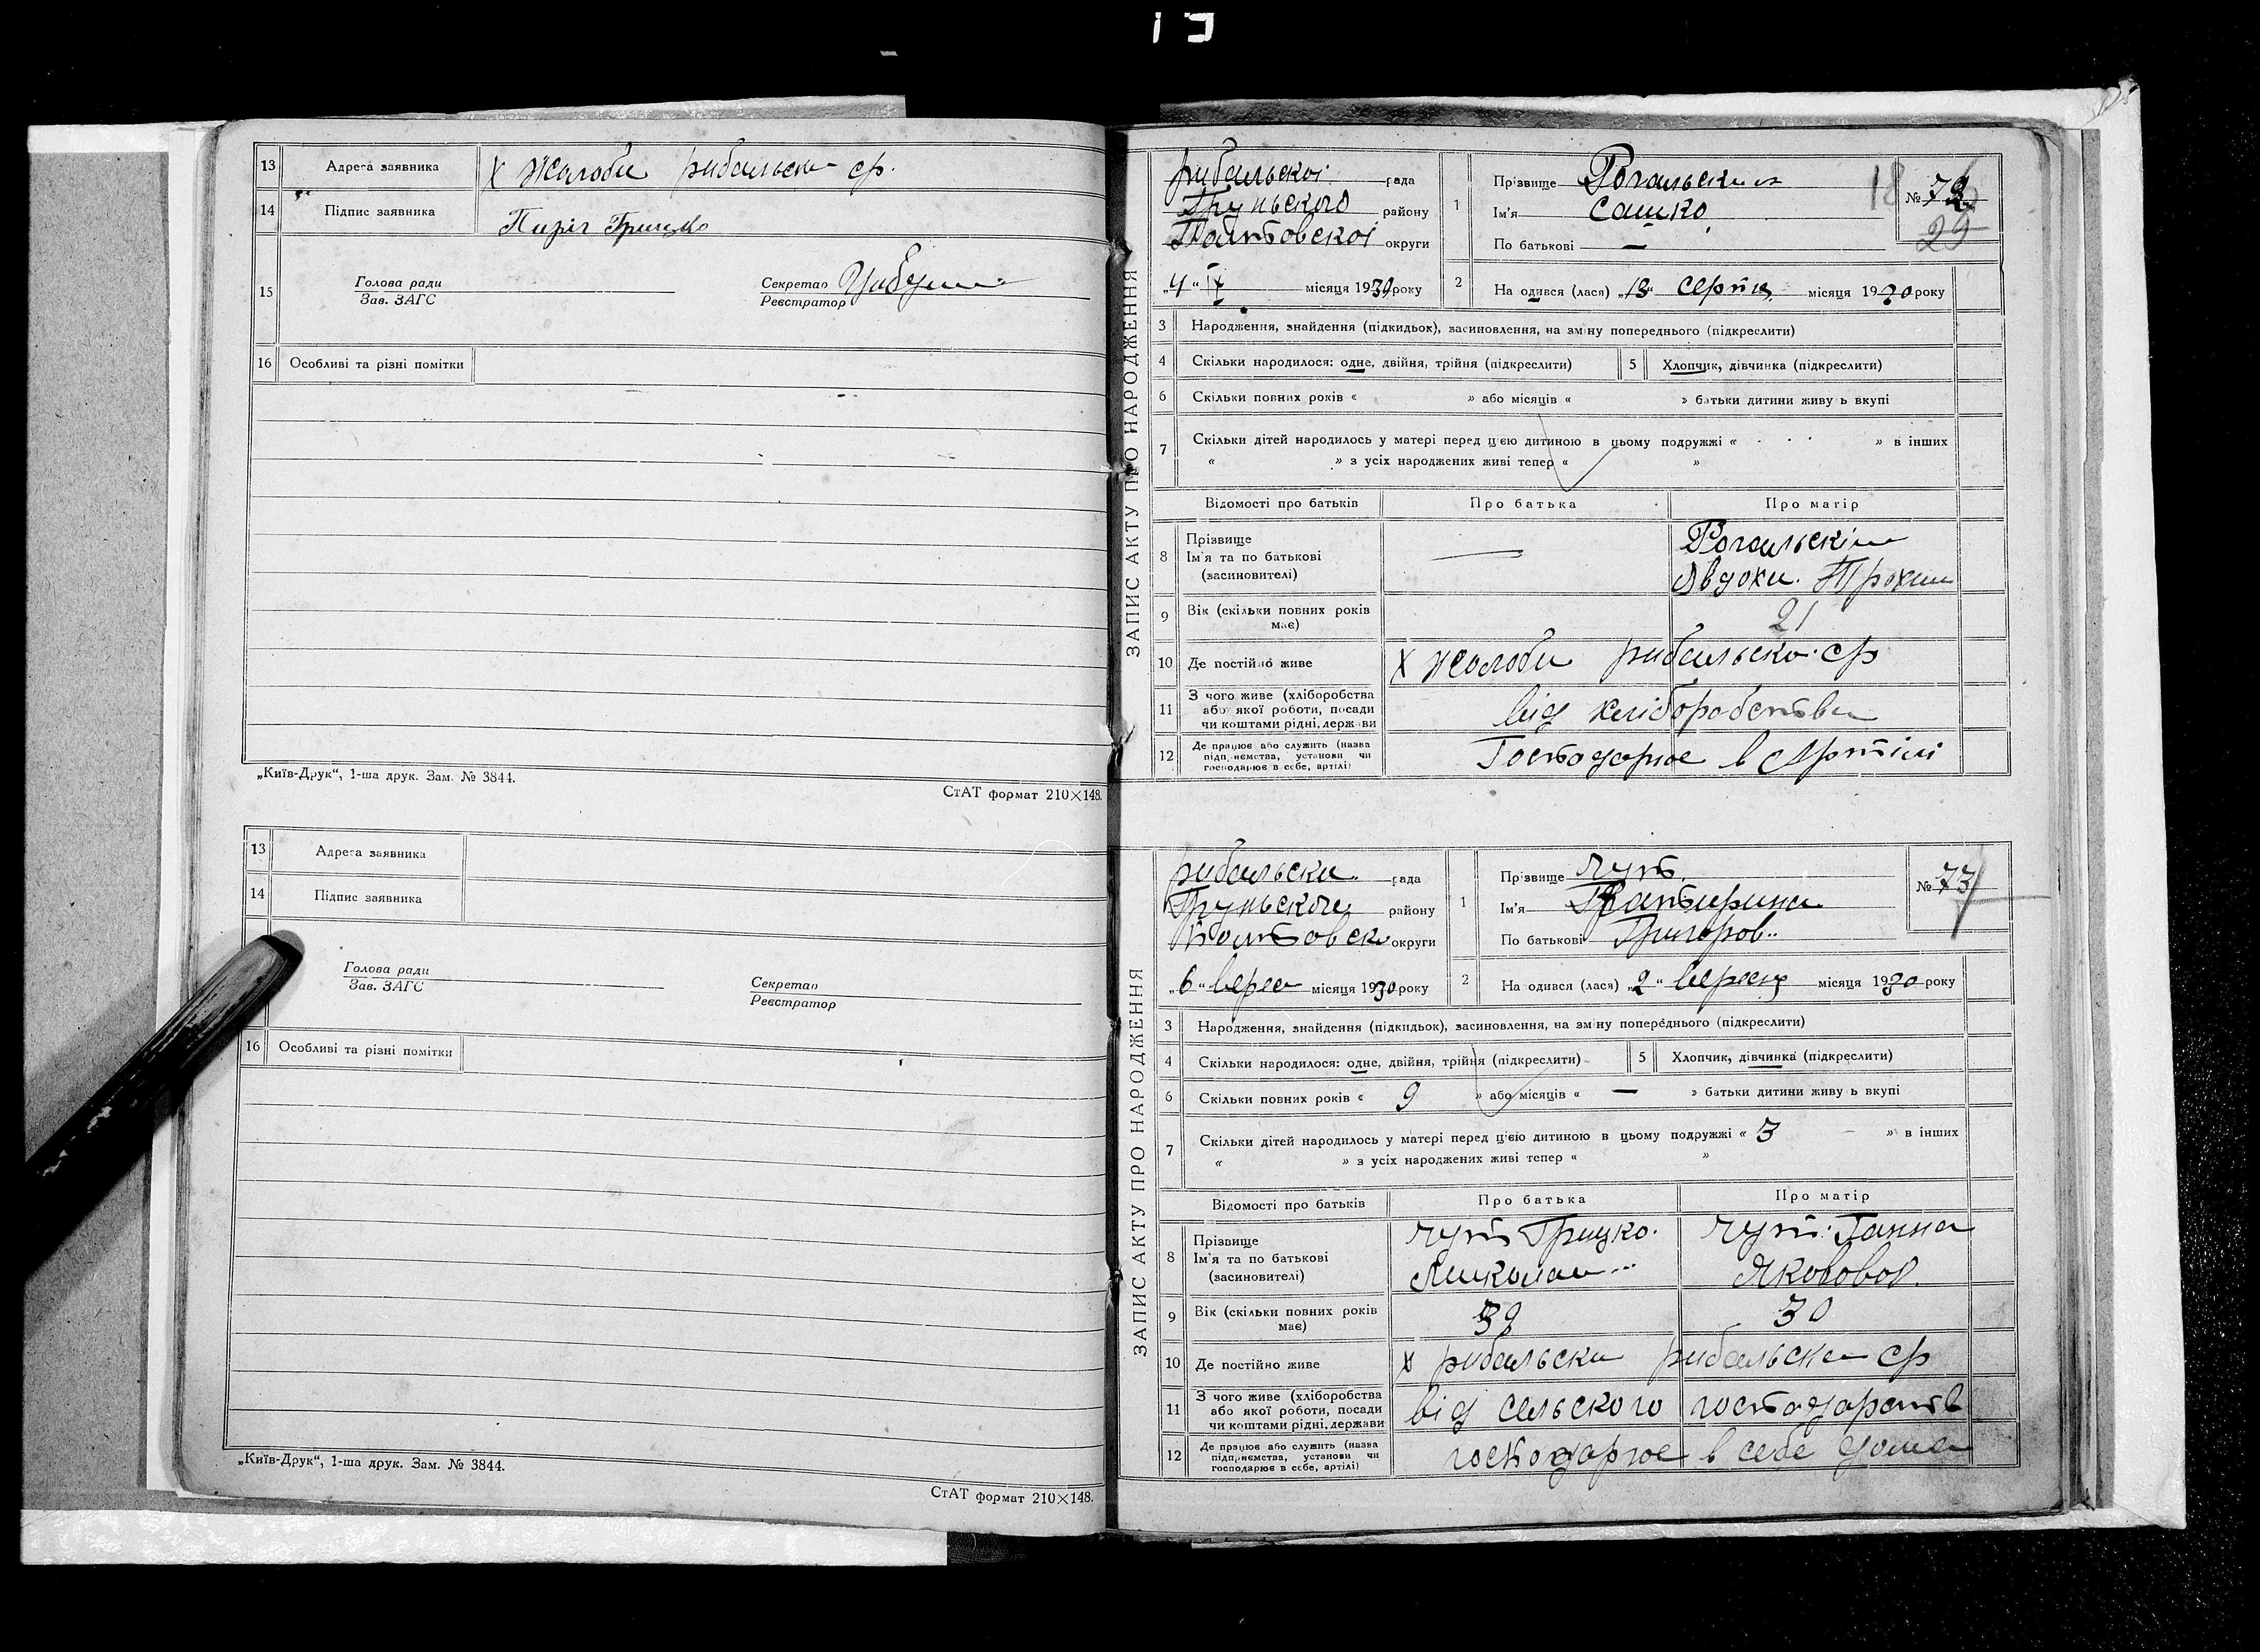 13 Адреса заявника х Жолоби рибальськ ср.
14 Підпис заявника Пиріг Грицько
15 Голова ради
Зав. ЗАГС
Секретар
Реєстратор
16 Особливі та різні помітки
„Київ-Друк“, 1-ша друк. Зам. № 3844.
СтАТ формат 210×148.
13 Адреса заявника
14 Підпис заявника
Голова ради
Зав. ЗАГС
Секретар
Реєстратор
16 Особливі та різні помітки
„Київ-Друк“, 1-ша друк. Зам. № 3844.
СтАТ формат 210×148.
ЗАПИС АКТУ ПРО НАРОДЖЕННЯ
рибальскоі рада
Груньского району
Полтовскоі округи
„4“ IX місяця 1930 року
1 Прізвище
Ім'я Сашко
По батькові —
№ 72
29
2 На одився (лася) „13“ серпня місяця 1930 року
3 Народження, знайдення (підкидьок), засиновлення, на зміну попереднього (підкреслити)
4 Скільки народилося: одне, двійня, трійня (підкреслити)
5 Хлопчик, дівчинка (підкреслити)
6 Скільки повних років « » або місяців « » батьки дитини живу ь вкупі
7 Скільки дітей народилось у матері перед цією дитиною в цьому подружжі « » в інших
« » з усіх народжених живі тепер « »
Відомості про батьків Про батька Про матір
8 Прізвище
Ім'я та по батькові
(засиновителі)
—
Явдоки. Прохии
9 Вік (скільки повних років має) 21
10 Де постійно живе х Жолоби рибальско. ср
11 З чого живе (хліборобства або якої роботи, посади чи коштами рідні, держави від хліборобства
12 Де працює або служить (назва підприємства, установи чи господарює в себе, артілі) Господарює в Артілі
ЗАПИС АКТУ ПРО НАРОДЖЕННЯ
рибальски рада
Груньского району
Полтовско округи
„6“ верес місяця 1930 року
1 Прізвище Чуп.
Ім'я Катирина
По батькові Григоров..
№ 73
2 На одився (лася) „2“ вересня місяця 1930 року
3 Народження, знайдення (підкидьок), засиновлення, на зміну попереднього (підкреслити)
4 Скільки народилося: одне, двійня, трійня (підкреслити)
5 Хлопчик, дівчинка (підкреслити)
6 Скільки повних років « 9 » або місяців « — » батьки дитини живу ь вкупі
7 Скільки дітей народилось у матері перед цією дитиною в цьому подружжі « 3 » в інших
« » з усіх народжених живі тепер « »
Відомості про батьків Про батька Про матір
8 Прізвище
Ім'я та по батькові
(засиновителі)
Чуп Грицко. Чуп. Ганна
Миколаи... Якововов.
9 Вік (скільки повних років має) 39 30
10 Де постійно живе х рибальски рибальска ср
11 З чого живе (хліборобства або якої роботи, посади чи коштами рідні, держави від сельского господарств
12 Де працює або служить (назва підприємства, установи чи господарює в себе, артілі) господарює в себе дома